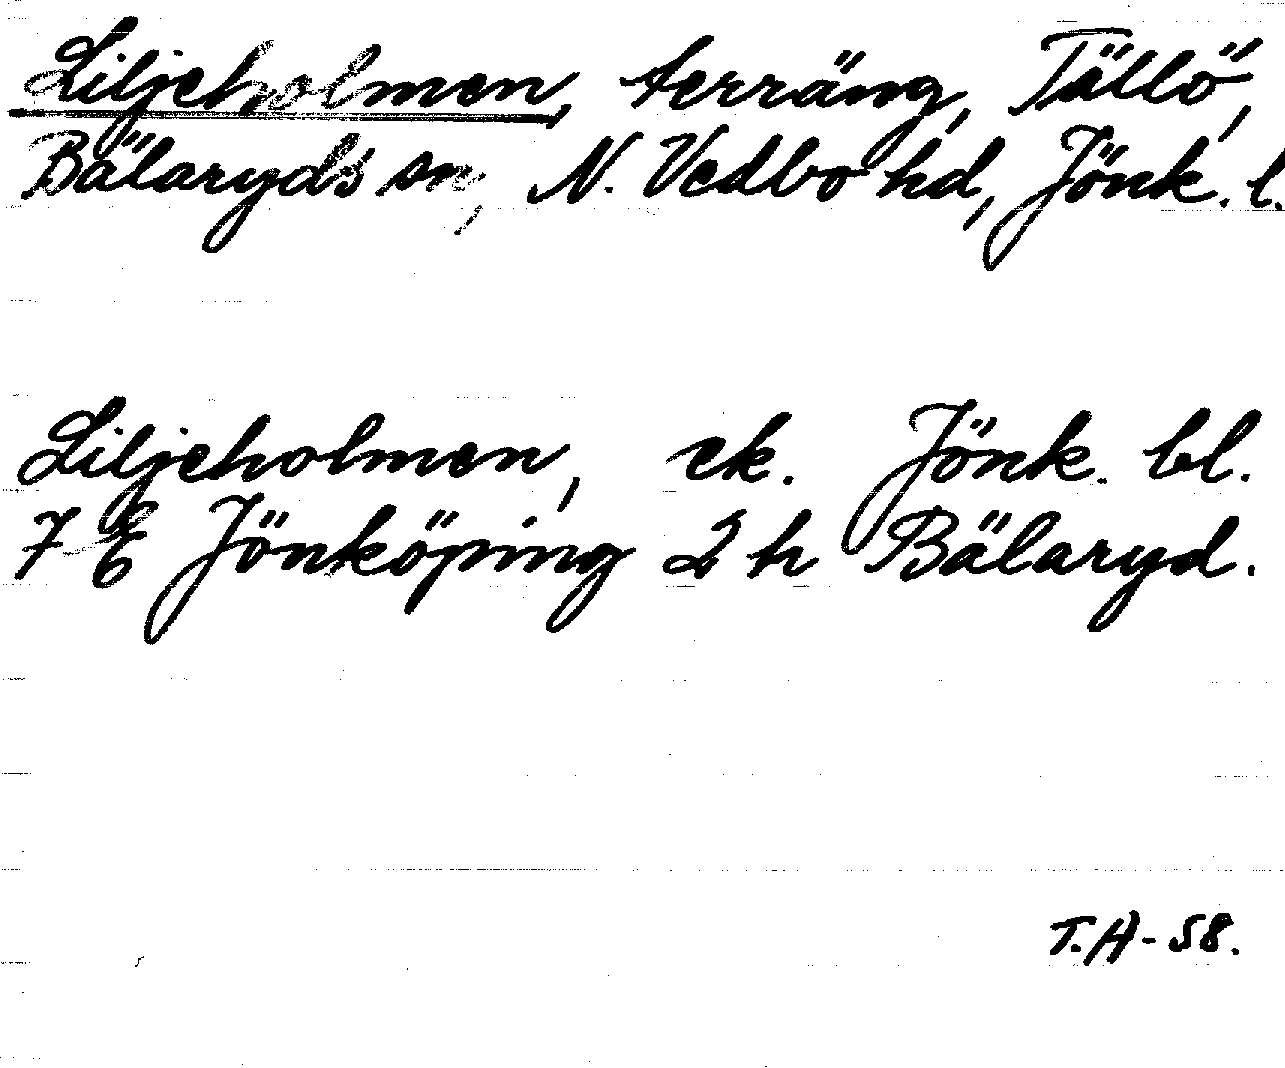 Liljeholmen, terräng, Tällö,
Bälaryds sn, N. Vedbo hd, Jönk. l.
Liljeholmen, ek. Jönk. bl.
7 E Jönköping 2 h Bälaryd.
T.A-58.